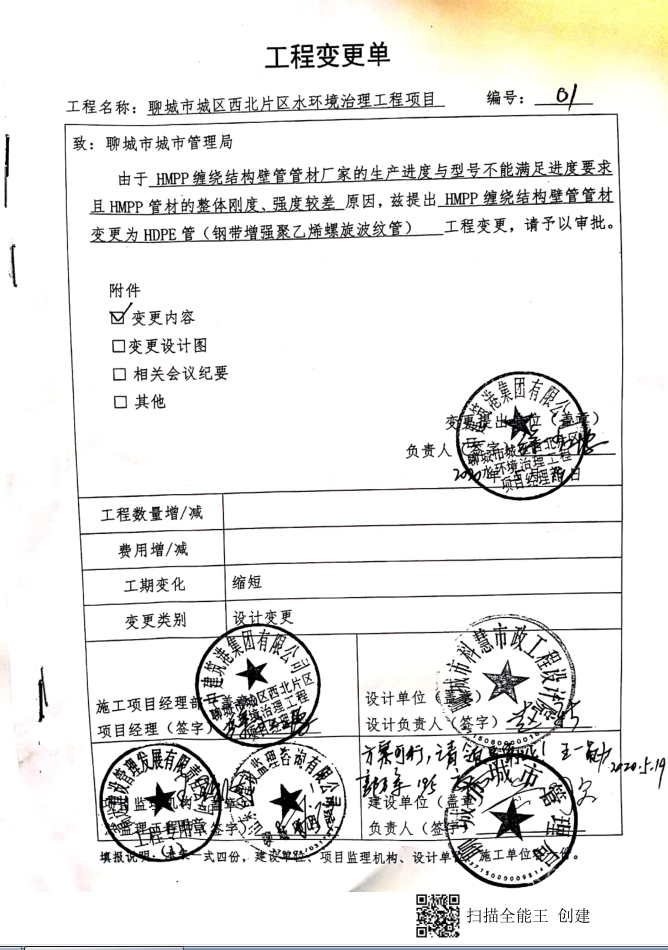 工程变更单
工程名称：聊城市城区西北片区水环境治理工程项目 编号：01
致：聊城市城市管理局
由于 HMPP 缠绕结构壁管管材厂家的生产进度与型号不能满足进度要求
且 HMPP 管材的整体刚度、强度较差 原因，兹提出 HMPP 缠绕结构壁管管材
变更为 HDPE 管（钢带增强聚乙烯螺旋波纹管） 工程变更，请予以审批。
附件
变更内容
变更设计图
相关会议纪要
其他
变更提出单位（盖章）
负责人（签字）
工程数量增/减
费用增/减
工期变化 缩短
变更类别 设计变更
施工项目经理部（盖章）
项目经理（签字）
设计单位（盖章）
设计负责人（签字）
方案可行，请
2020.5.19
建设单位（盖章
负责人（签字）
填报说明：本表一式四份，建设单位、项目监理机构、设计单位、施工单位各一份。
扫描全能王 创建